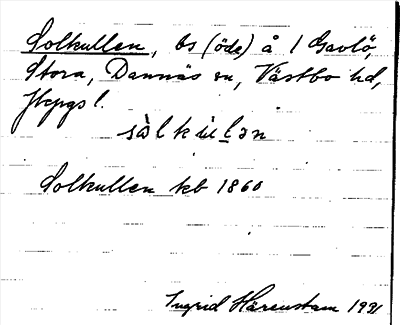 Solkullen, bs (öde) å 1 Gavlö,
Stora, Dannäs sn, Västbo hd,
Jkpgs l.
sòlkùlən
Solkullen kb 1860
Ingrid Härenstam 1991